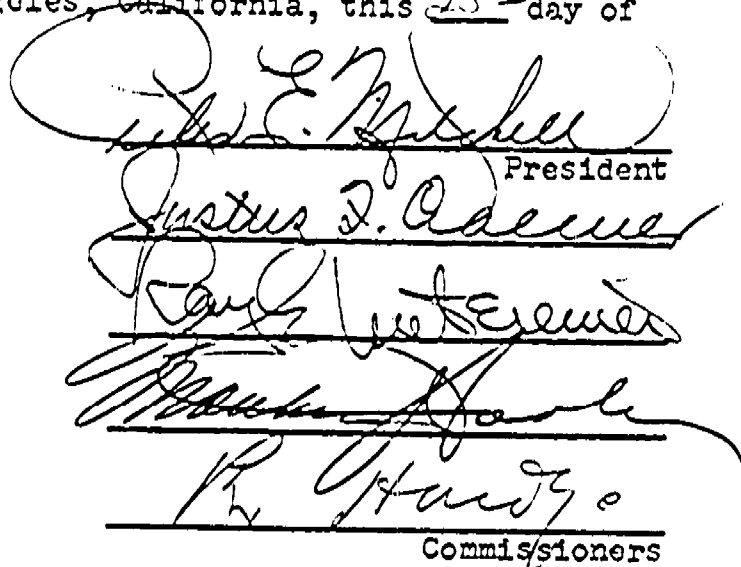 geles, California, this 25 day of
Peter E. Mitchell
President
Justus F. Craemer
Ray L. Untereiner
Hardy
Commissioners